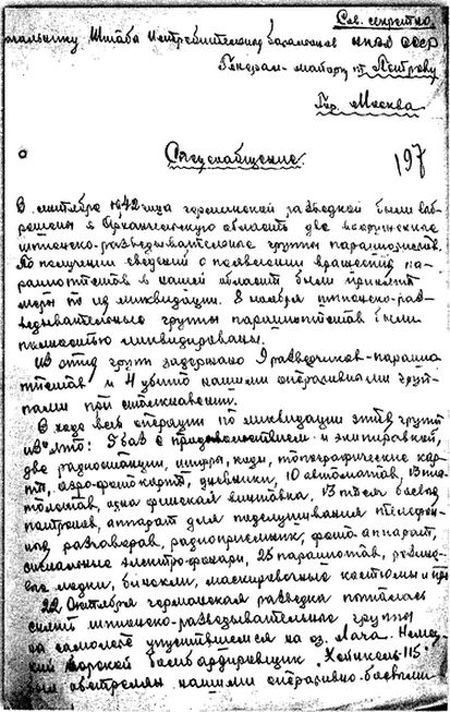 Сов. секретно
начальнику Штаба Истребительных батальонов НКВД СССР
Генерал-майору т. Петрову
гор. Москва
197
Спецсообщение.
В сентябре 1942 года германской разведкой были заб-
рошены в Архангельскую область две вооруженные
шпионско-разведывательные группы парашютистов.
По получении сведений о появлении вражеских па-
рашютистов в нашей области были приняты
меры по их ликвидации. 8 ноября шпионско-раз-
ведывательные группы парашютистов были
полностью ликвидированы.
Из этих групп задержано 9 разведчиков-парашю-
тистов и 4 убито нашими оперативными груп-
пами при столкновении.
В ходе всей операции по ликвидации этих групп
изъято: баз с продовольствием и экипировкой,
две радиостанции, шифры, коды, топографические кар-
ты, аэро-фото карты, дневники, 10 автоматов, 13 пис-
толетов, одна финская винтовка, 13 тысяч боевых
патронов, аппарат для подслушивания телефон-
ных разговоров, радиоприемник, фото аппарат,
специальные электро-фонари, 25 парашютов, резино-
вые лодки, бинокли, маскировочные костюмы и пр.
22 Октября германская разведка пыталась
снять шпионско-разведывательные группы
на самолете опустившемся на оз. Лача. Немец-
кий морской бомбардировщик „Хейнкель-115"
был обстрелян нашими оперативно-боевыми